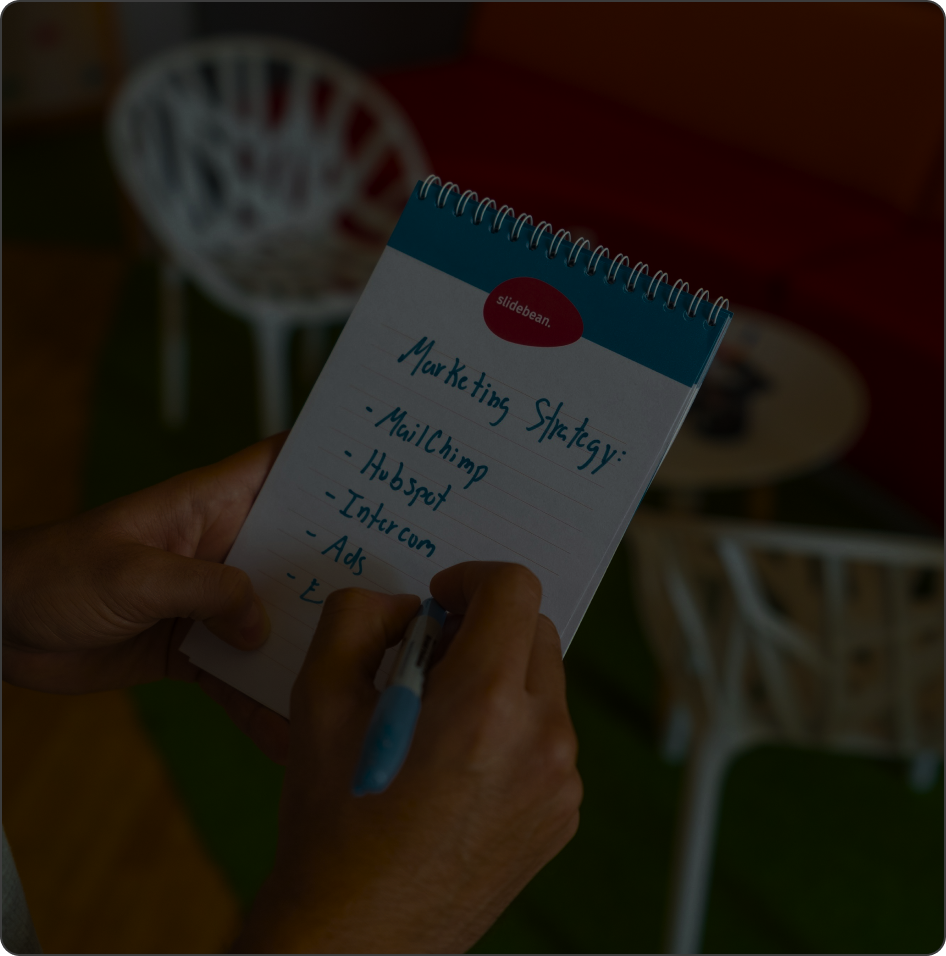 slidebean.
Marketing Strategy:
- MailChimp
- Hubspot
- Intercom
- Ads
- E